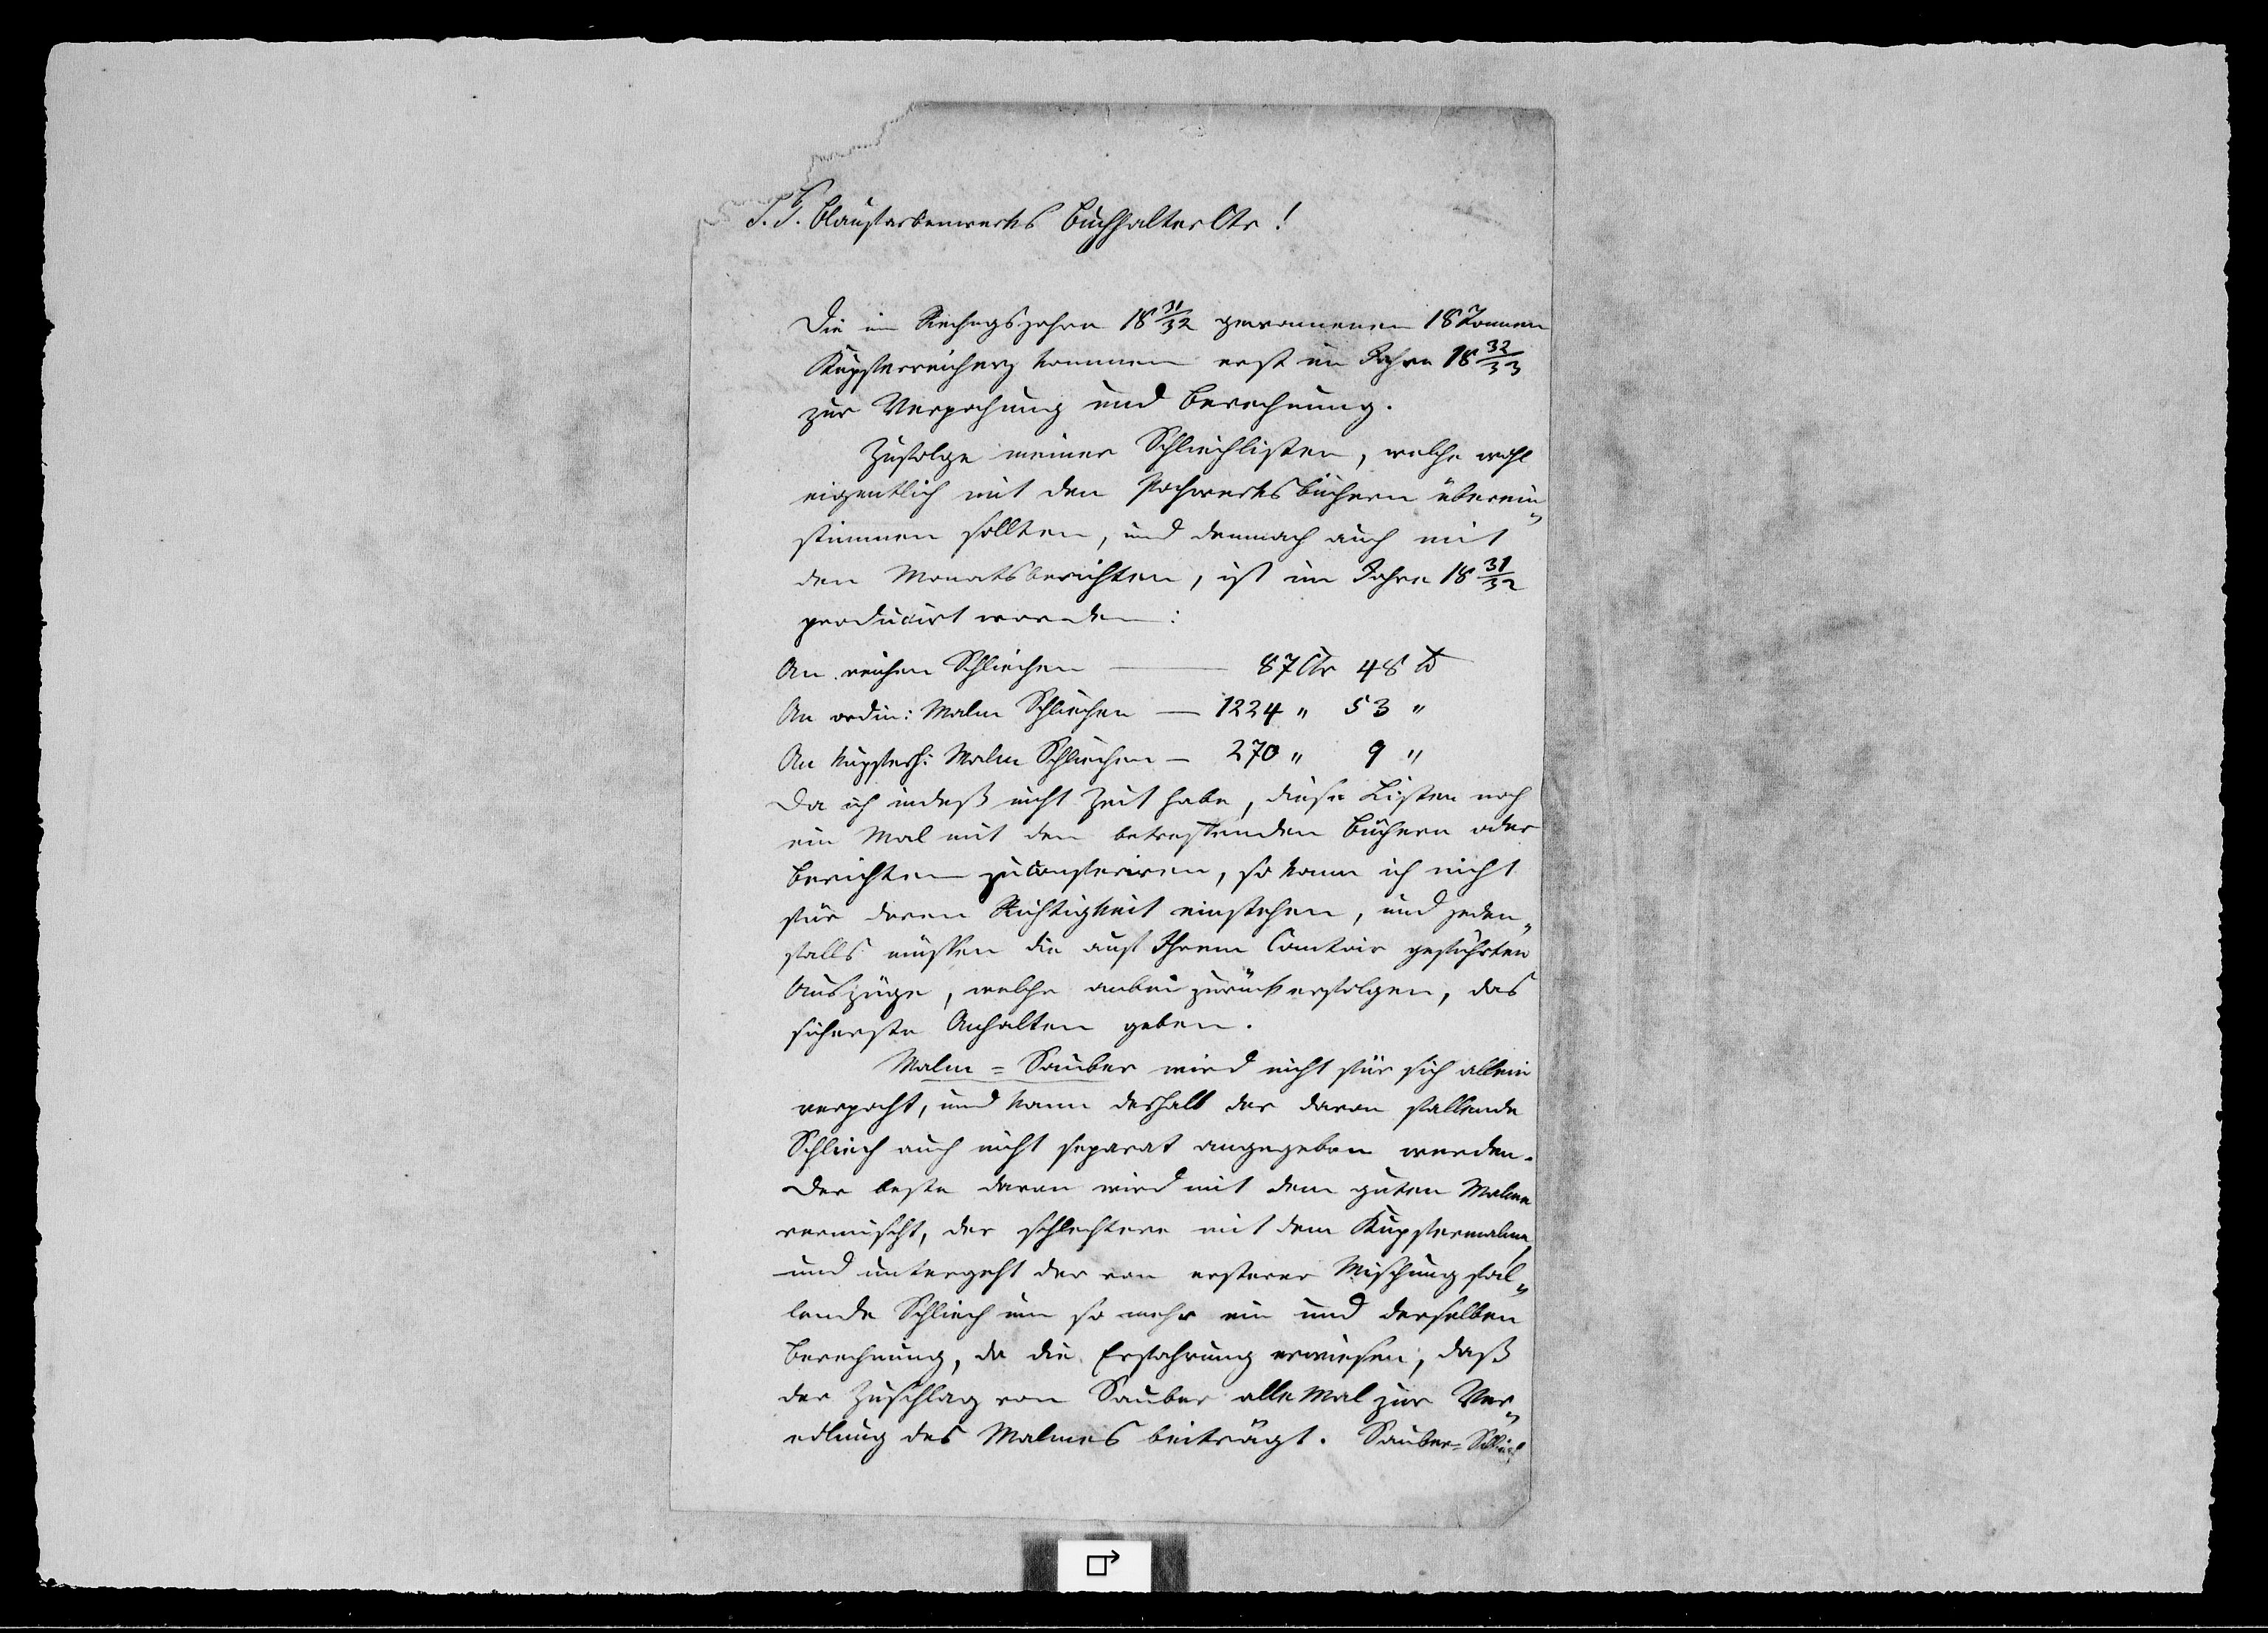 S. T. Blaufarbenwerks Buchhalter Otr!
Die im Rechngsjahre 18 31/32 gewonnenen 18 Tonnen
Kupferreicherz kommen erst im Jahre 18 32/33
zur Verpochung und Berechnung.
Zufolge meiner Schliechlisten, welche wohl
eigentlich mit den Pochwerksbüchern überein„
stimmen sollten, und demnach auch mit
den Monatsberichten, ist im Jahre 18 31/32
producirt worden:
An reichen Schliechen — 87 Ctr 48 ℔
An ordin: Malm Schliechen — 1224 „ 53 „
An kupferh: Malm Schliechen — 270 „ 9 „
Da ich indeß nicht Zeit habe, diese Listen noch
ein Mal mit den betreffenden Büchern oder
Berichten zu conferiren, so kann ich nicht
für deren Richtigkeit einstehen, und jeden„
falls müssen die auf Ihrem Comtoir geführten
Auszüge, welche anbei zurück erfolgen, das
sicherste Anhalten geben.
Malm = Sauber wird nicht für sich allein
verpocht, und kann deshalb der davon fallende
Schliech auch nicht separat angegeben werden.
Der beste davon wird mit dem guten Malme
vermischt, der schlechtere mit dem Kupfermalme,
und untergeht der von ersterer Mischung fal„
lende Schliech um so mehr ein und derselben
Berechnung, da die Erfahrung erwiesen, daß
der Zuschlag von Sauber alle Mal zur Ver„
edlung des Malmes beiträgt. Sauber= Schliech